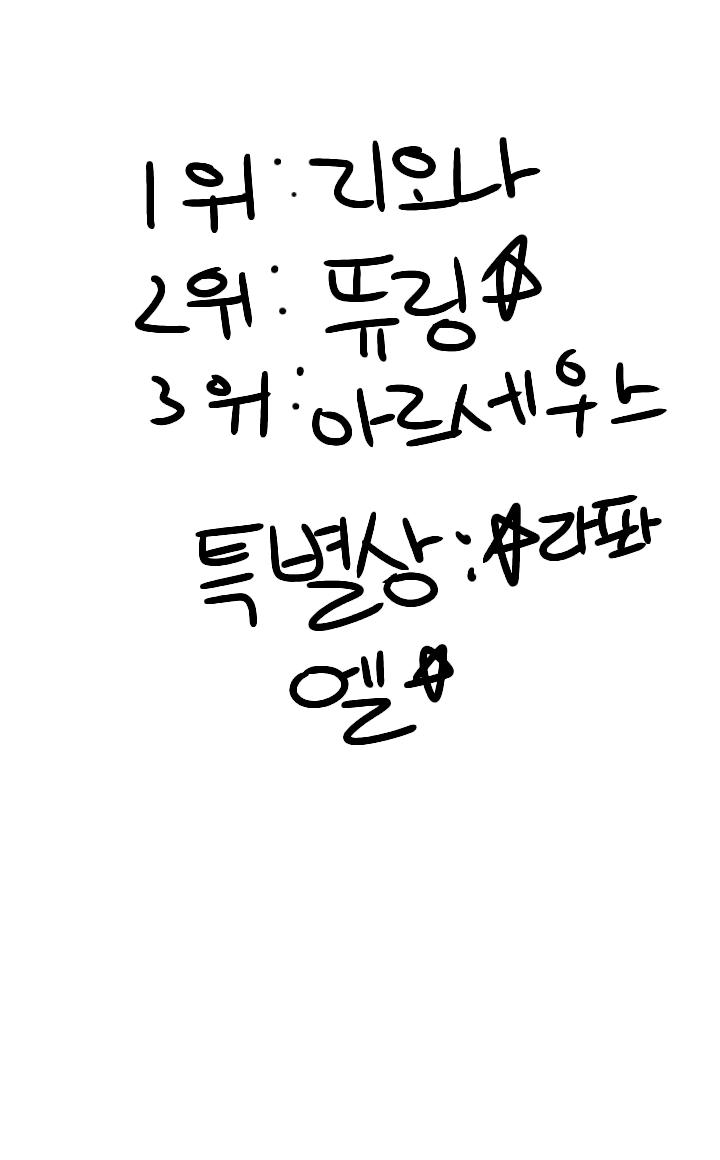 1위: 리오나
2위: 퓨링☆
3위: 아르세우스
특별상: ☆라파
엘☆